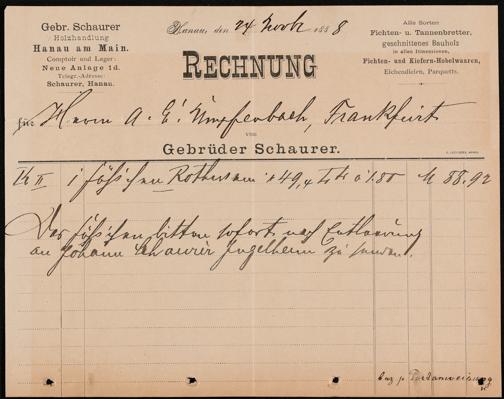 Gebr. Schaurer
Holzhandlung
Hanau am Main.
Comptoir und Lager:
Neue Anlage 1d.
Telegr.-Adresse:
Schaurer, Hanau.
Hanau, den 24 Novbr 1888
Alle Sorten
Fichten- u. Tannenbretter,
geschnittenes Bauholz
in allen Dimensionen,
Fichten- und Kiefern-Hobelwaaren,
Eichendielen, Parquetts.
RECHNUNG
für Herrn A. E. Wimpfenbach, Frankfurt
von
Gebrüder Schaurer.
1 Fässchen 49,4 à 1.80 M 88.92
Das Fässchen bitten sofort nach Entleerung
an Johann Schaurer Ingelheim zu senden.
p. Postanweisung